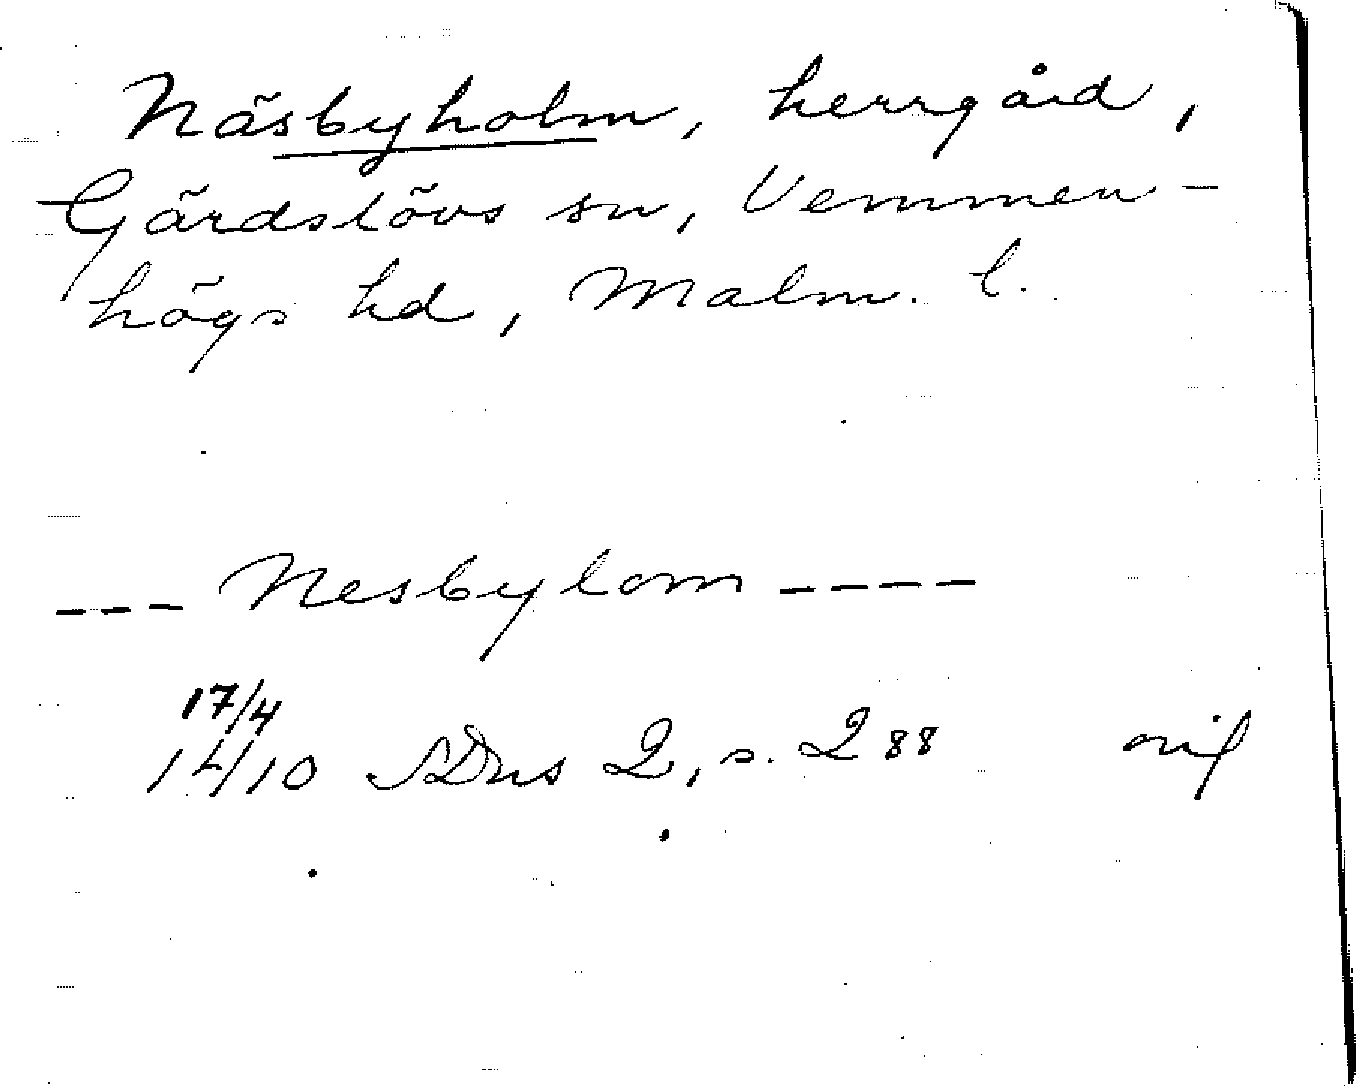 Näsbyholm, herrgård,
Gärdslövs sn, Vemmen-
högs hd, Malm. l.
--- Nesbylom ----
17/4
1410 SDns 2, s. 288 orig